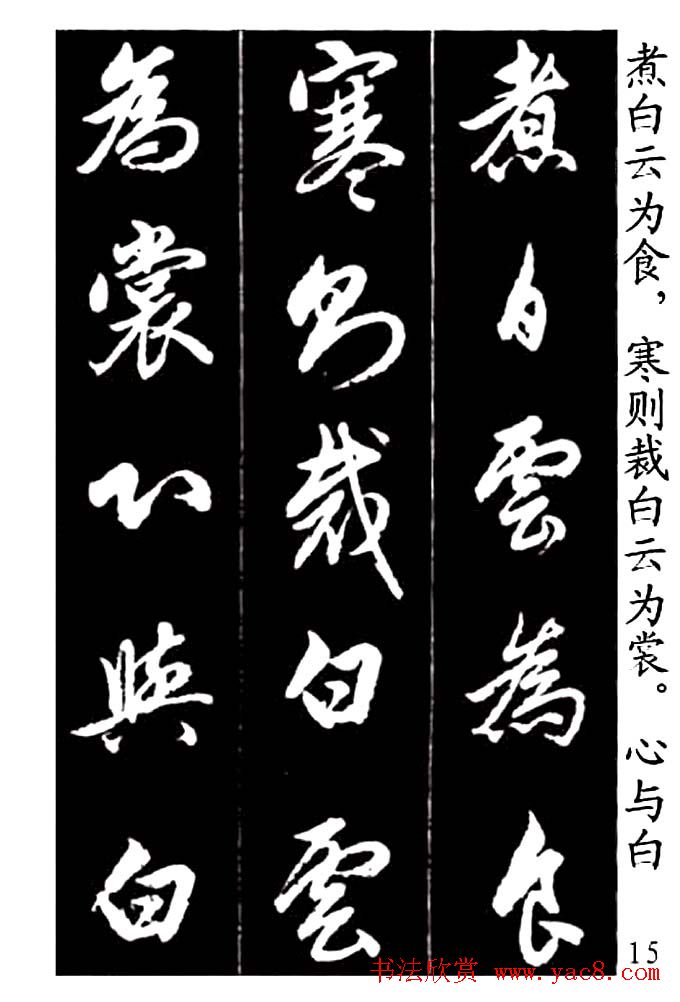 煮白雲為食
寒則裁白雲
為裳心與白
煮白云为食，寒则裁白云为裳。心与白
15
书法欣赏 www.yac8.com